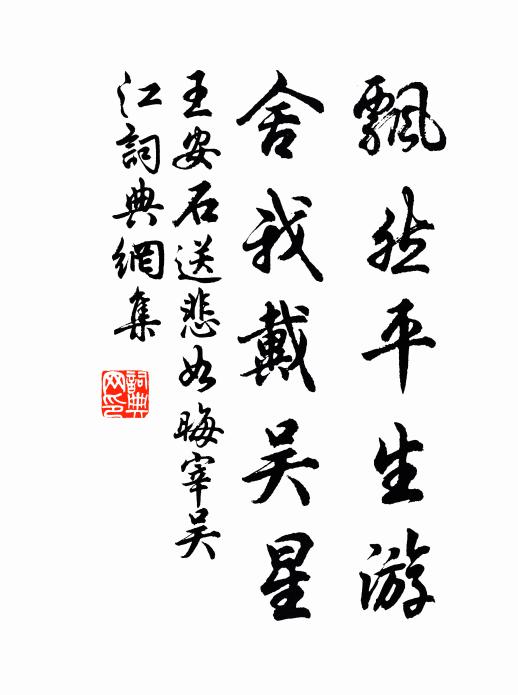 飄然平生游
舍我戴吴星
王安石送悲如晦宰吴
江詞典網集
詞典
网印